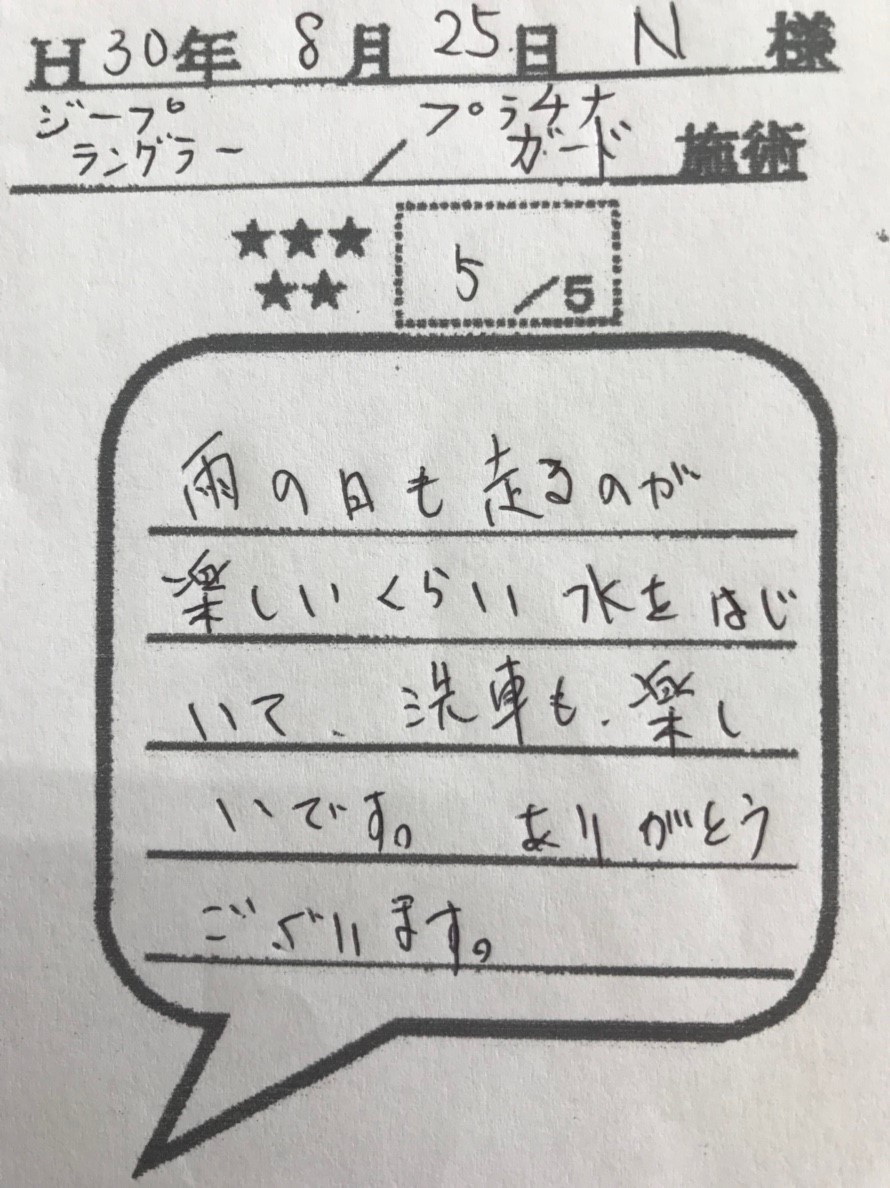 H30年 8月 25日 N 様
ジープ ラングラー / プラチナ ガード 施術
★★★
★★ 5/5
雨の日も走るのが
楽しいくらい水をはじ
いて、洗車も、楽し
いです。 ありがとう
ございます。